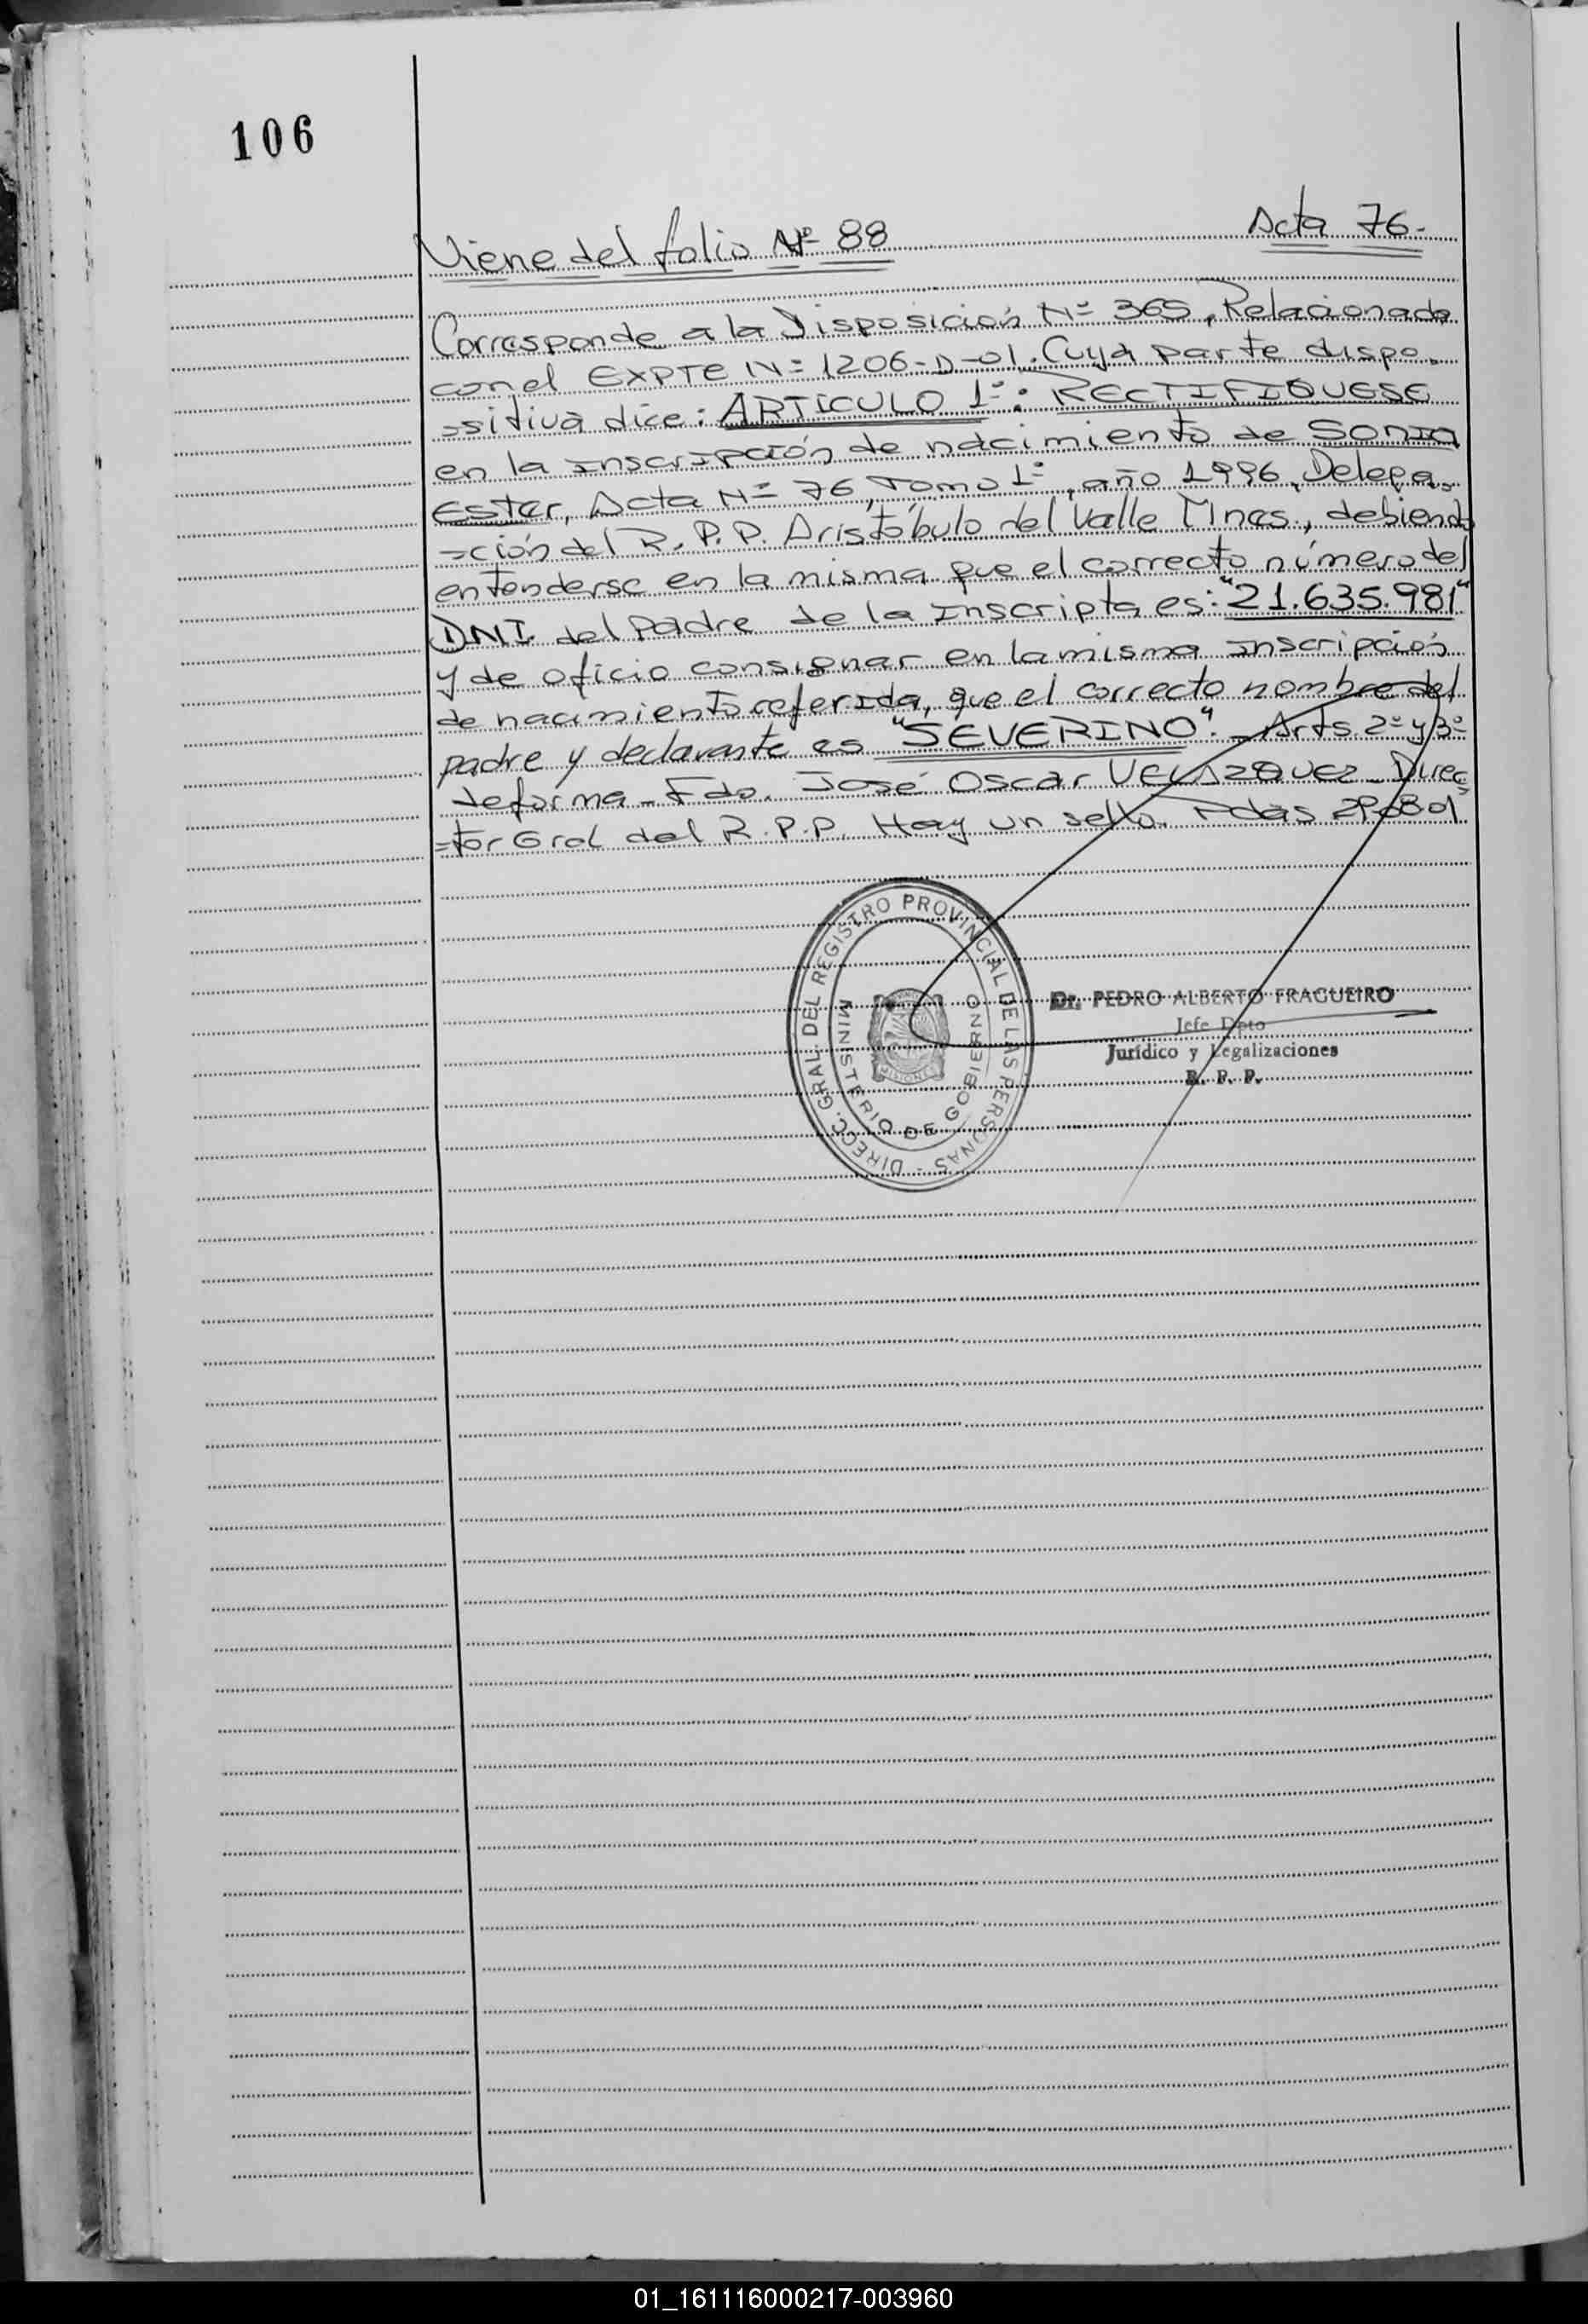 106
Viene del folio Nº 88 Acta 76.
Corresponde a la Disposición Nº 365, Relacionada
con el EXPTE Nº 1206-D-01. Cuya parte dispo-
-sitiva dice: ARTICULO 1º: RECTIFIQUESE
en la inscripción de nacimiento de SONIA
Ester, Acta Nº 76, Tomo 1º, año 1996, Delega-
-ción del R.P.P. Aristóbulo del Valle Mnes., debiendo
entenderse en la misma, que el correcto número del
DNI. del Padre de la Inscripta es: "21.635.981"
y de oficio consignar en la misma inscripción
de nacimiento referida, que el correcto nombre del
padre y declarante es "SEVERINO". Arts. 2º y 3º
de forma - Fdo. José Oscar VELAZQUEZ - Direc-
-tor Gral del R.P.P. Hay un sello. Pdas 29-08-01.
DIRECC. GRAL. DEL REGISTRO PROVINCIAL DE LAS PERSONAS -
MINISTERIO DE GOBIERNO
MISIONES
Dr. PEDRO ALBERTO FRAGUEIRO
Jefe Dpto
Jurídico y Legalizaciones
R. P. P.
01_161116000217-003960